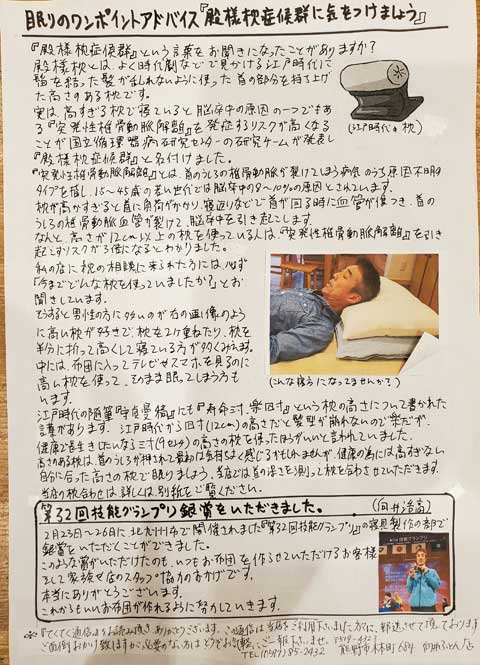 眠りのワンポイントアドバイス『殿様枕症候群に気をつけましょう』
『殿様枕症候群』という言葉をお聞きになったことがありますか?
殿様枕とは、よく時代劇などで見かける江戸時代に
髷を結った髪が乱れないように使った首の部分を持ち上げ
た高さのある枕です。
実は高すぎる枕で寝ていると脳卒中の原因の一つでもあ
る『突発性椎骨動脈解離』を発症するリスクが高くなる
ことが国立循環器病研究センターの研究チームが発表し
『殿様枕症候群』と名付けました。
(江戸時代の枕)
『突発性椎骨動脈解離』とは、首のうしろの椎骨動脈が裂けてしまう病気のうち原因不明の
タイプを指し、15〜45歳の若い世代では脳卒中の8〜10%の原因とされています。
枕が高かすぎると首に負荷がかかり、寝返りなどで首が回る時に血管が傷つき、首の
うしろの椎骨動脈血管が裂けて、脳卒中を引き起こします。
なんと、高さが12cm以上の枕を使っている人は、『突発性椎骨動脈解離』を引き
起こすリスクが3倍になるとわかりました。
私の店に枕の相談に来られた方には、必ず
「今までどんな枕を使っていましたか?」とお
聞きしています。
そうすると男性の方に多いのが右の画像のよう
に高い枕が好きで、枕を2ケ重ねたり、枕を
半分に折って高くして寝ている方が多くみえます。
中には、布団に入ってテレビやスマホを見るのに
高い枕を使って、そのまま眠ってしまう方も
います。
(こんな寝方になってませんか?)
江戸時代の随筆『守貞漫稿』にも『寿命三寸、楽四寸』という枕の高さについて書かれた
諺があります。江戸時代から四寸(12cm)の高さだと髪型が崩れないので楽だが、
健康で長生きしたいなら三寸(9センチ)の高さの枕を使ったほうがいいと言われていました。
高さのある枕は、首のうしろが持されて最初は気持ちよく感じるかもしれませんが、健康の為には高すぎない
自分に合った高さの枕で眠りましょう。当店では首の深さを測って枕を合わさせていただきます。
当店の枕合わせは、詳しくは、別紙をご覧ください。
第32回技能グランプリ銀賞をいただきました。 (向井浩高)
2月23日〜26日に北九州市で開催されました『第32回技能グランプリ』の寝具製作の部で
銀賞をいただくことができました。
このような賞がいただけたのも、いつもお布団を作らせていただけるお客様
そして家族や店のスタッフ協力のおかげです。
本当にありがとうございます。
これからもいいお布団が作れるように努力していきます。
※『てくてく通信』をお読み頂き、ありがとうございます。この通信は当店をご利用下さいました方に、郵送させて頂いております
ご面倒おかけ致しますが、必要のない方はどうぞお気軽に、ご一報下さいませ。〒519-4323
TEL(0597)85-2432 熊野市木本町684 向井ふとん店